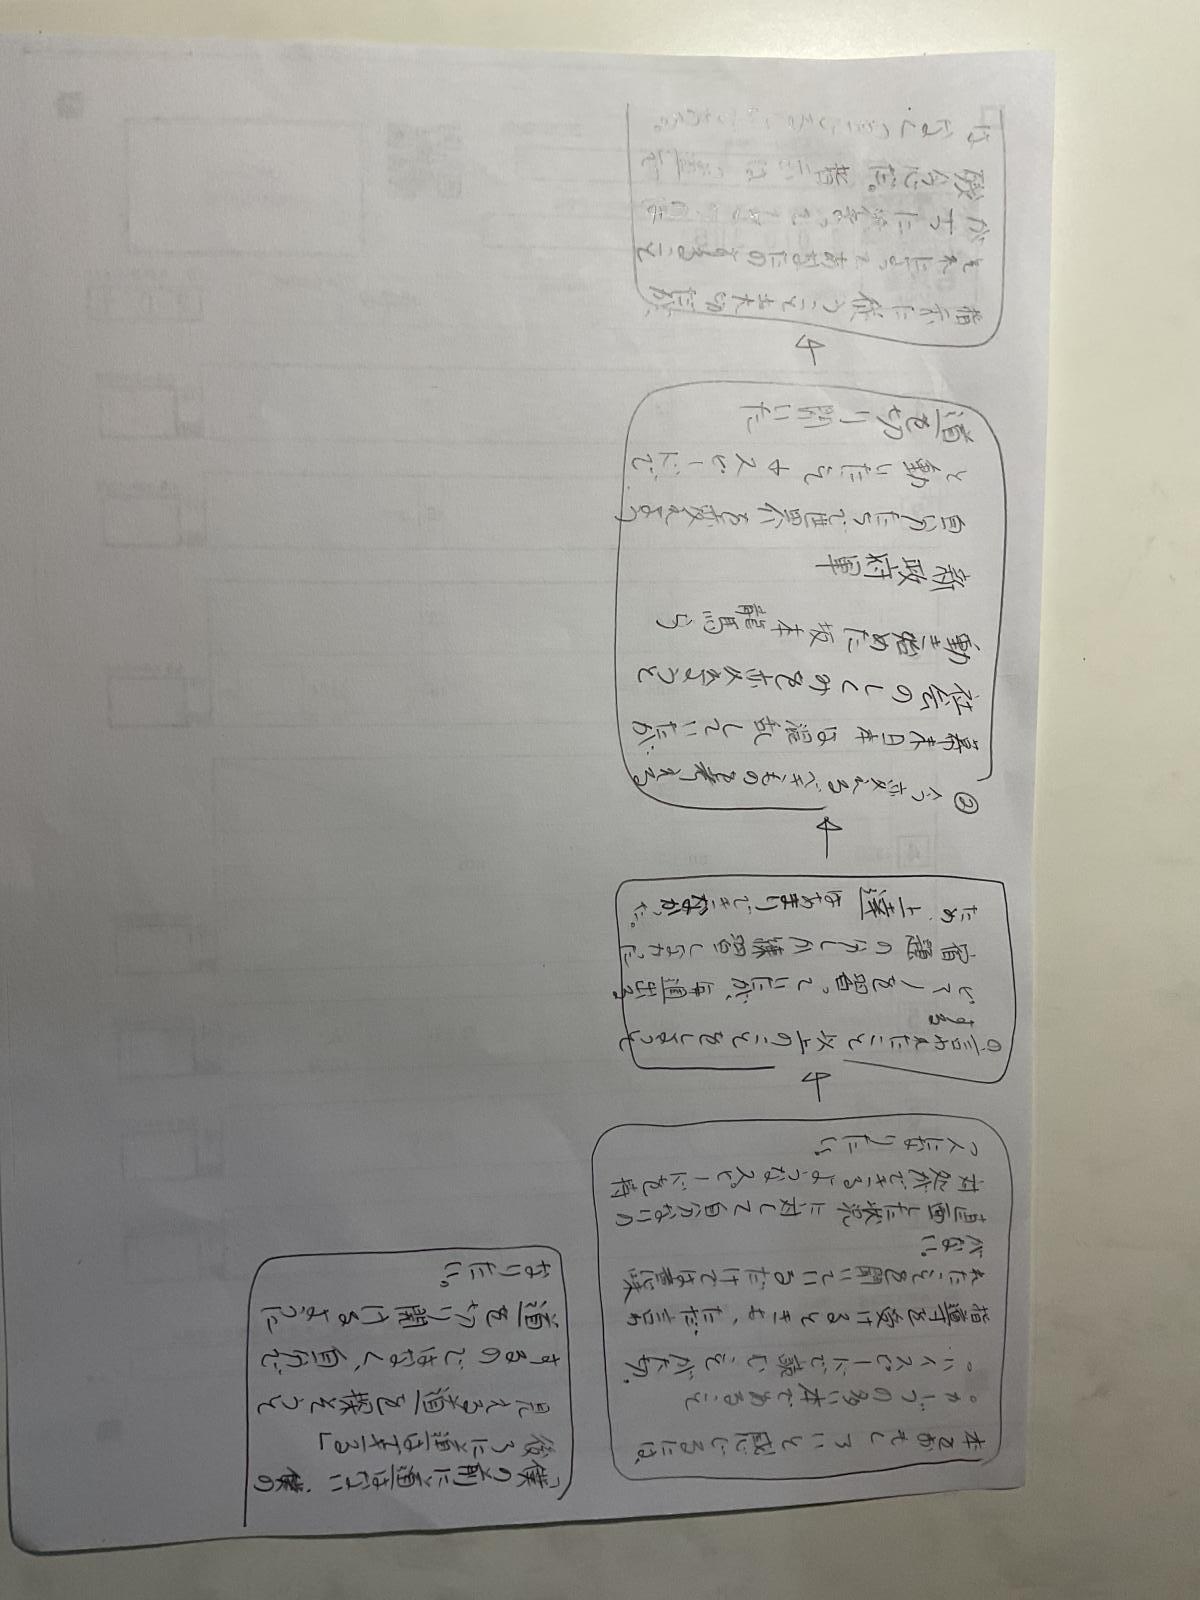 本をおもしろいと感じるには、
の多い本であること
ハイスピードで読むことが大切。
指導を受けるときも、ただ言わ
れたことを聞いているだけでは意味
がない。
直面した状況に対して自分なりの
対処できるようなスピードを持
つ人になりたい。
①言われたこと以上のことをしようと
する
ピアノを習っていたが、毎週出る
宿題の分しか練習しなかった
ため、上達はあまりできなかった。
②今変えるべきものを考える
幕末日本は混乱していたが、
社会のしくみを変えようと
動き始めた坂本龍馬ら
新政府軍
自分たちで世界を変えよう
と動いた スピードで
道を切り開いた
指示に従うことも大切だが、
「僕の前に道はない、僕の
後ろに道はできる」
見える道を探そうと
するのではなく、自分で
道を切り開けるように
なりたい。